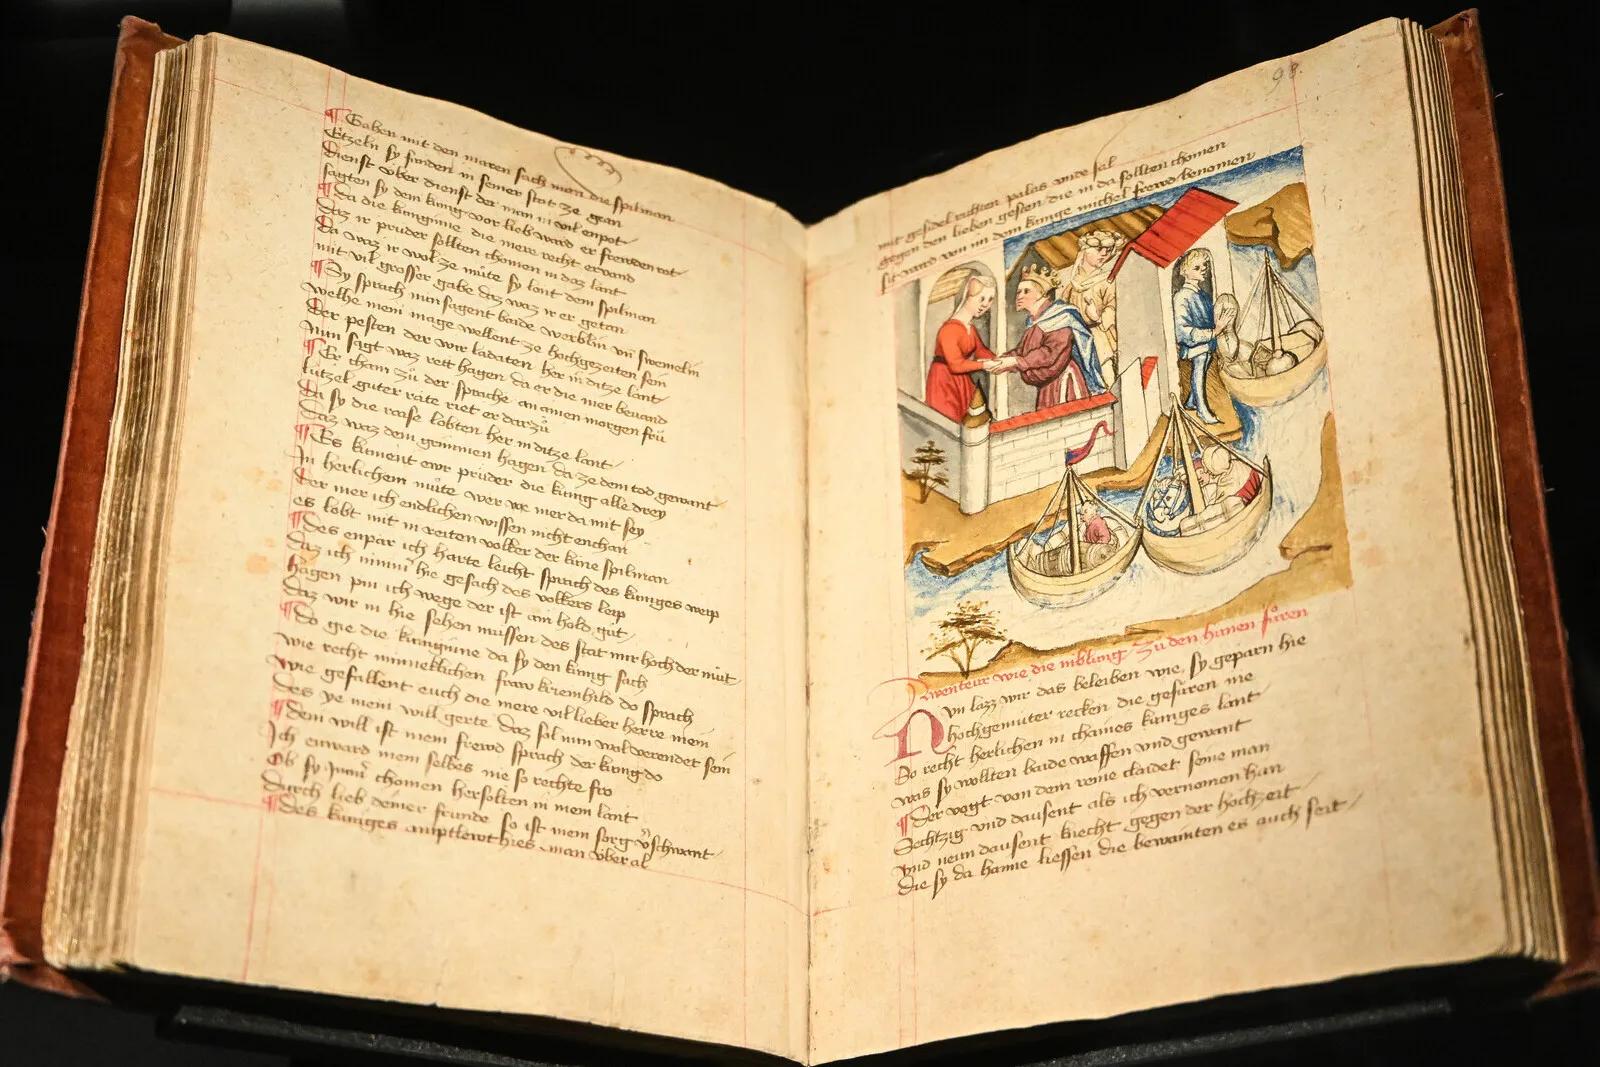 ¶ Gahen mit den maren sach man die spilman
Etzeln sy funden in seiner stat ze gran
dienst über dienst der man im vil enpot
sagten sy dem kunig vor lieb ward er freuden rot
¶ Da die kunginne die mere recht ervand
daz ir pruder sollten chomen in daz lant
Da waz ir wol ze müte sy lont dem spilman
mit vil grosser gabe daz waz ir er getan
¶ Sy sprach nun sagent baide werblin vn swemelin
welhe mein mage wellent ze hochgezeiten sein
Der pesten der wir ladaten her in ditze lant
Nun sagt waz rett hagen da er die mer bevand
¶ Er cham zü der sprache an ainen morgen frü
lützel guter rate riet er darzü
Da sy die raise lobten her in ditze lant
Daz waz dem grimmen hagen da ze dem tod gewant
¶ Es kument ewr prüder die kunig alle drey
In herlichem müte wer we mer da mit sey
Der mer ich endlichen wissen nicht enchan
es lobt mit in reiten volker der küne spilman
¶ Des enpär ich harte leicht sprach des kuniges weip
Daz ich nimm hie gesach des volkers leip
hagen pin ich wege der ist ain hold güt
Daz wir in hie sehen mussen des stat mir hoch der mut
¶ Do gie die kunginne da sy den kunig sach
wie recht minneklichen fraw kriemhild do sprach
wie gefallent euch die mere vil lieber herre mein
Des ye mein will gerte daz sol nun wol verendet sein
¶ dem will ist mein frewd sprach der kunig do
Ich enward mein selbes nie so rechte fro
Ob sy Immer chomen hersolten in mein lant
Durch lieb deiner frunde so ist mein sorg vschwant
¶ des kuniges amptlewt hies man über al
98.
mit gesidel richten palas unde sal
gegen den lieben gesten die in da sollten chomen
sit ward von im dem kunge michel frewd benomen
Awenteur wie die niblung zü den hünen füren
Nun lazz wir das beleiben wie sy geparn hie
hochgemüter recken die gefüren nie
So recht herlichen in chaines kuniges lant
was sy wollten baide waffen und gewant
¶ Der vogt von dem reine claidet seine man
Sechtzig vnd dausent als ich vernomen han
vnd neun dausent knecht gegen der hochzeit
die sy da haime liessen die bewainten es auch seit